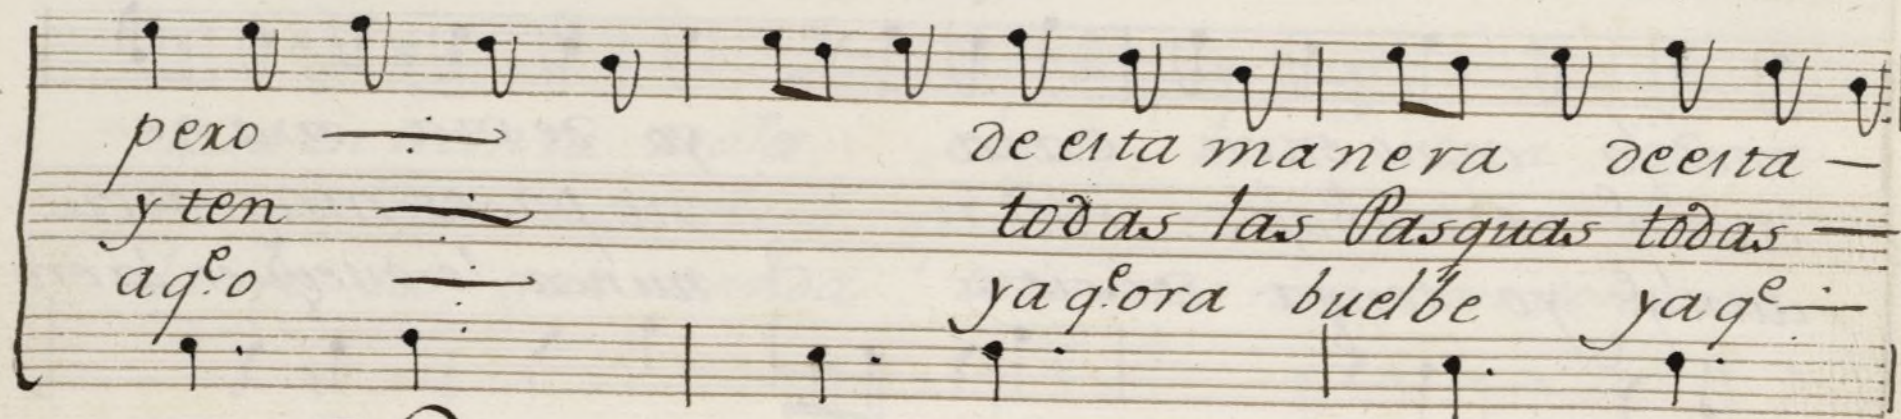 pero de esta manera de esta
y ten todas las Pasquas todas
a q.e o y a q.e ora buelbe y a q.e